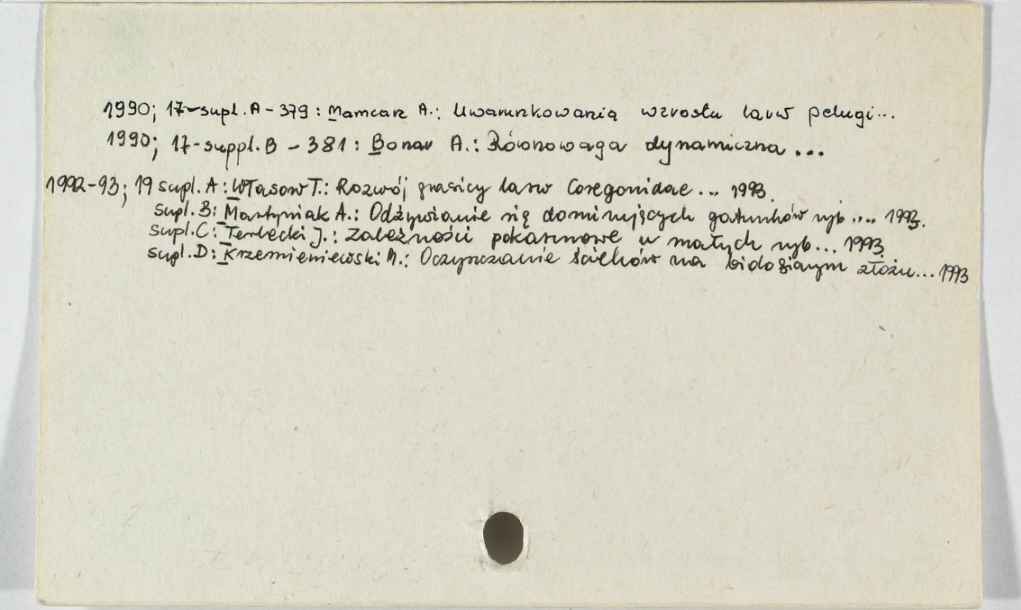 1990; 17-supl. A - 379 : Mamcarz A.: Uwarunkowania wzrostu larw pelugi...
1990; 17-suppl. B - 381 : Bonar A.: Równowaga dynamiczna ...
1992-93; 19 supl. A : Własow T.: Rozwój grasicy larw Coregonidae... 1993.
supl. B: Martyniak A.: Odżywianie się dominujących gatunków ryb .... 1993.
supl. C: Terlecki J.: Zależności pokarmowe u małych ryb... 1993.
supl. D: Krzemieniewski M.: Oczyszczanie ścieków na złożu... 1993